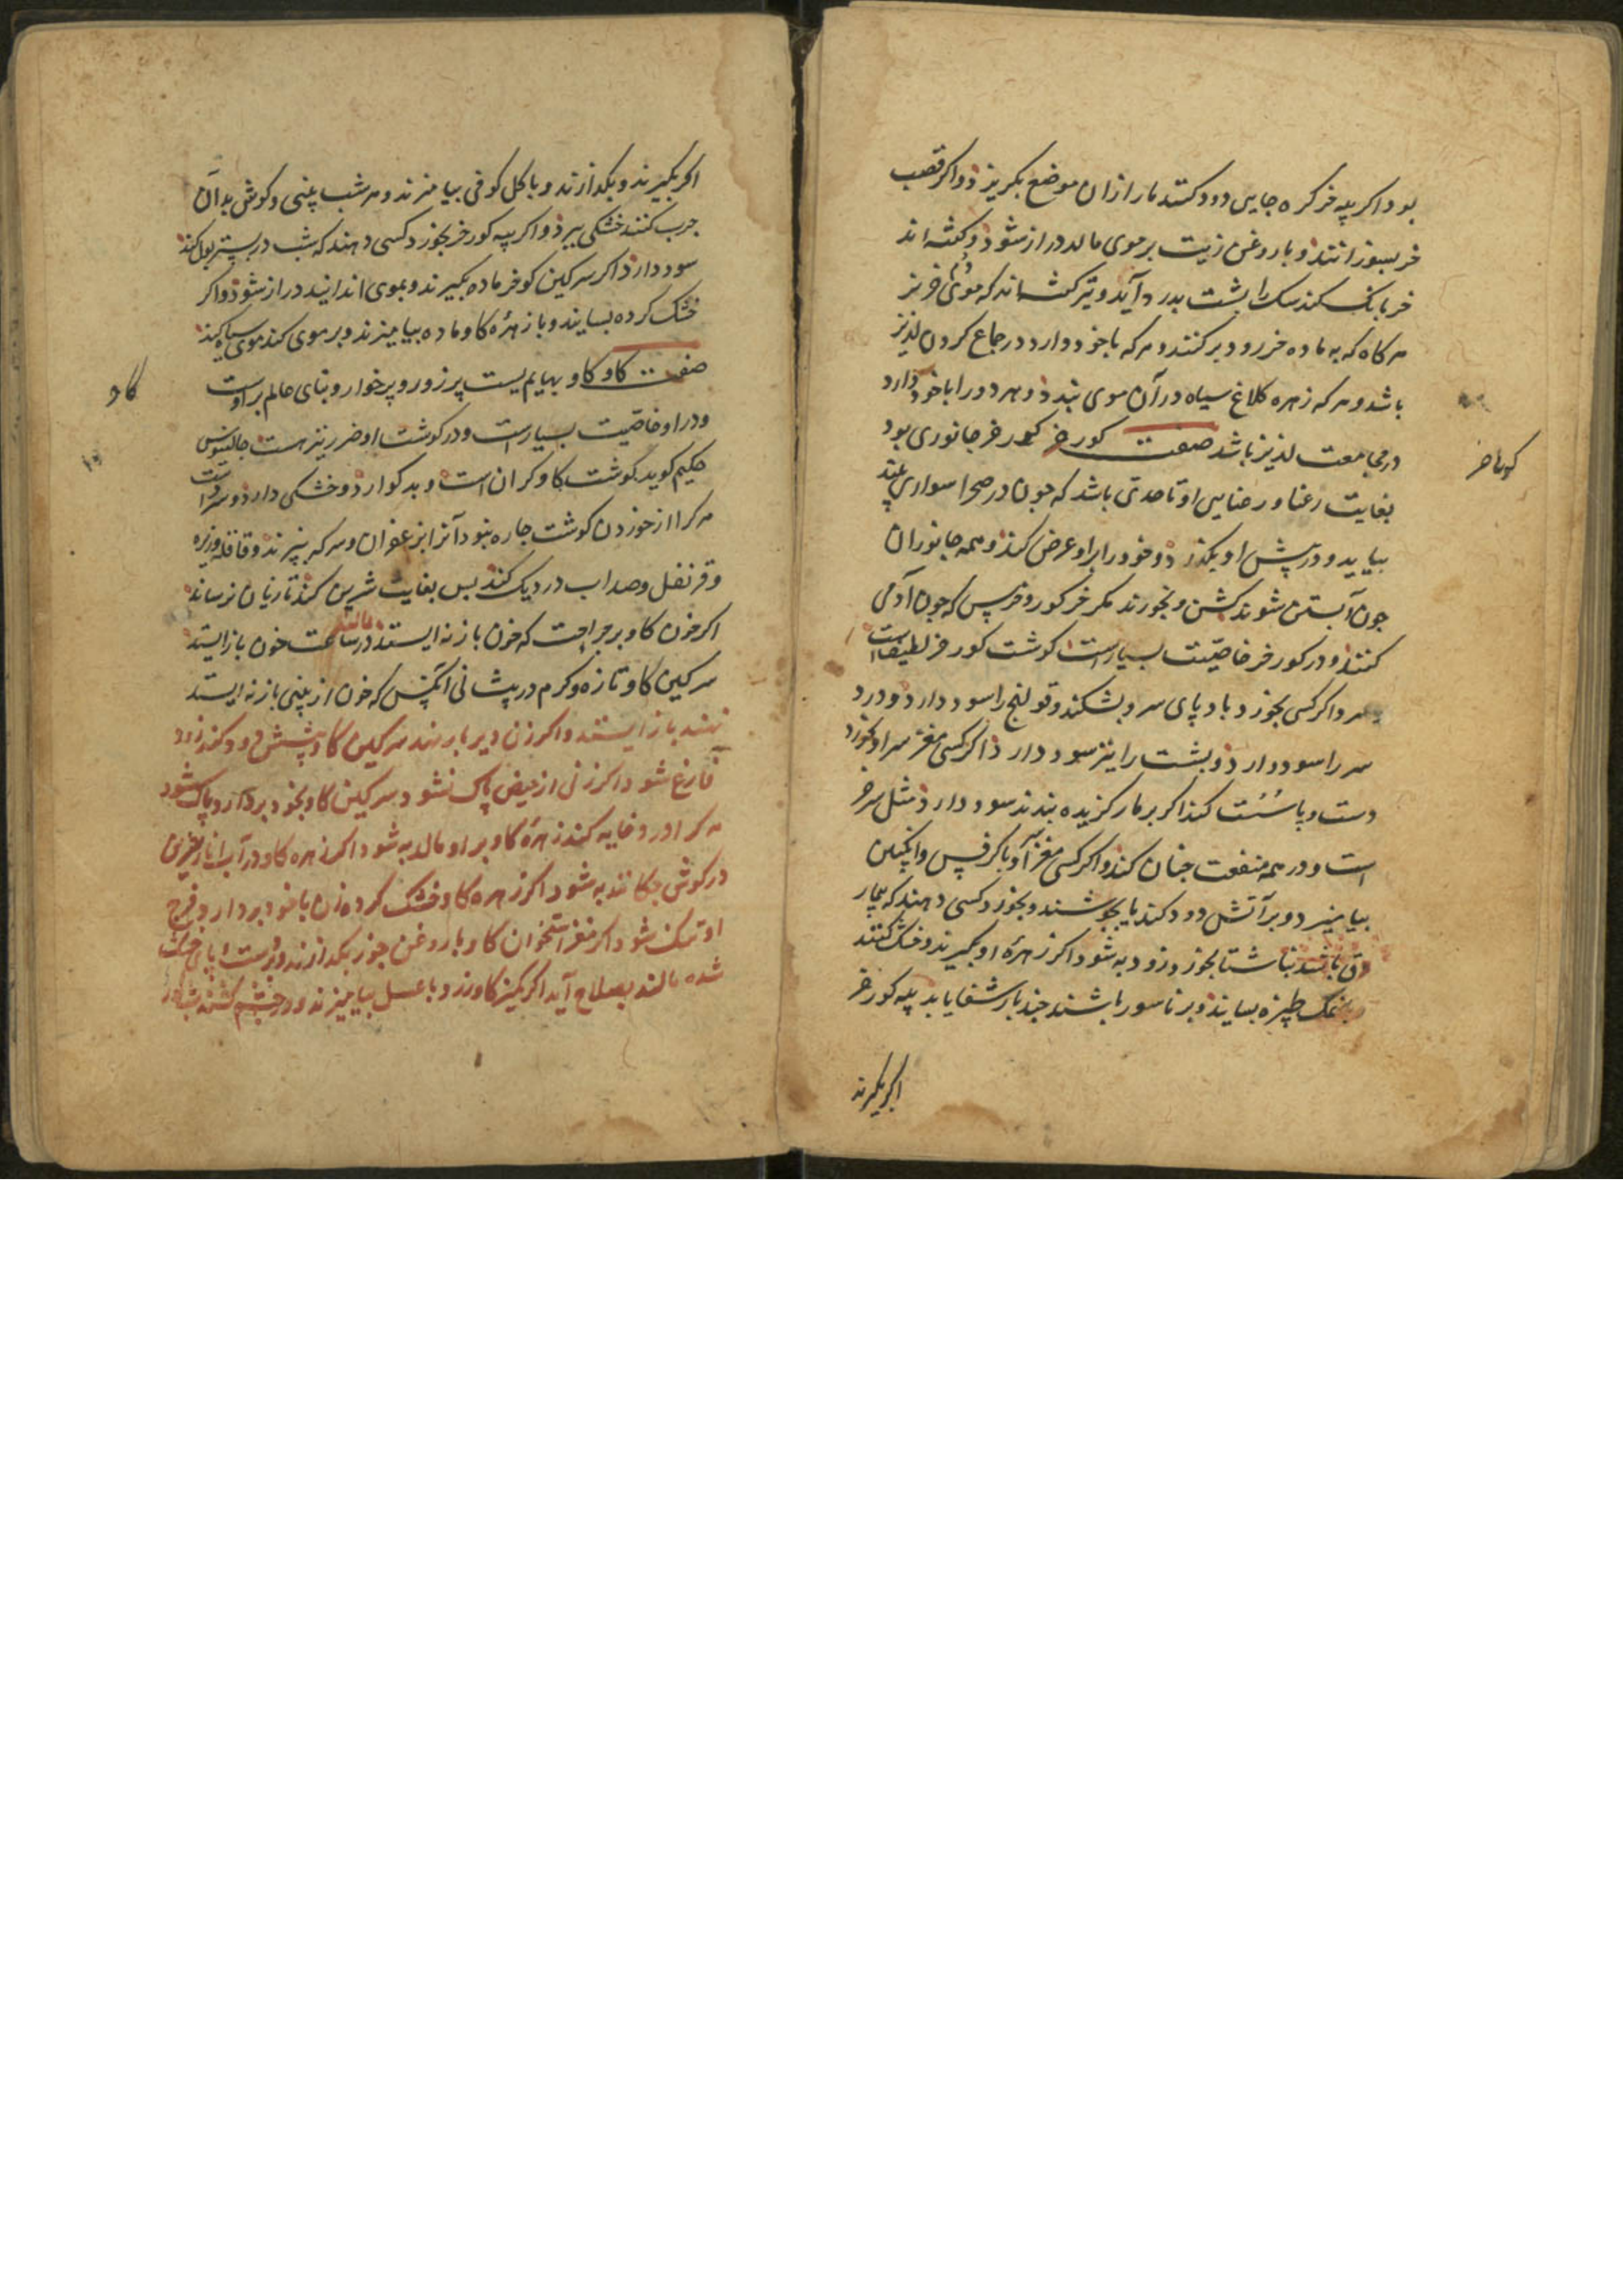 بود اکر پیه خر کره جایی دود کنند مار ازان موضع بکریزد و اکر قضیب
خر بسوزانند و با روغن زیت بر موی مالد دراز شود و کفته اند
خر بانک کند سک را پشت بدرد آید و نیز کفته اند که موی دم خر نر
هرکاه که به ماده خر رود بر کنند و هر که با خود دارد در جماع کردن لذیذ
باشد و هر که زهره کلاغ سیاه در آن موی بندد و هر دو را با خود دارد
در مجامعت لذیذ باشد صفت کور خر کور خر جانوری بود
کور خر
بغایت رعنا و رعنایی او تا حدی باشد که چون در صحرا سواری بیند
بیاید و در پیش او بکذرد و خود را برا و عرض کند و همه جانوران
چون آبستن شوند کشن نخورند مکر خر کور و خرس که چون آدمی
کنند و در کور خر خاصیت بسیارست کوشت کور خر لطیف است
و سرد اکر کسی بخورد باد پای سرد بشکند و قولنج را سود دارد و درد
سر را سود دارد و پشت را نیز سود دارد اکر کسی مغز سر او بخورد
دست و پا سست کند اکر بر مار کزیده بندند سود دارد مثل سر خر
است و در همه منفعت چنان کند و اکر کسی مغز او با کرفس و انکبین
بیامیزد و بر آتش دود کند یا بجوشند و بخورد کسی دهند که بیمار
دق باشد بناشتا بخورد زود به شود اکر زهرهٔ او بکیرند و خشک کنند
با نمک طبرزه بسایند و بر ناسور باشند چند بار شفا یابد پیه کور خر
اکر بکیرند
اکر بکیرند و بکدازند و با کل کوفی بیامیزند و هر شب بینی و کوش بدان
چرب کنند خشکی ببرد و اکر پیه کور خر بخورد کسی دهند که شب در بستر بول کند
سود دارد اکر سرکین کور خر ماده بکیرند و بموی اندایند دراز شود و اکر
خشک کرده بسایند و با زهرهٔ کاو ماده بیامیزند و بر موی کند موی سیاه کند
صفت کاو کاو بهایم یست پر زور و پر خوار و بنای عالم بر اوست
کاو
و در او خاصیت بسیارست و در کوشت او ضرر نیز هست جالینوس
حکیم کوید کوشت کاو کران است و بد کوارد و خشکی دارد و سرد است
هر کرا از خوردن کوشت چاره نبود آنرا بزعفران و سرکه بپزند و قاقله و زیره
و قرنفل و صداب در دیک کند بس بغایت شیرین کند تا زیان نرساند
اکر خون کاو بر جراحت که خون باز نه ایستد مالند در ساعت خون باز ایستد
سرکین کاو تازه و کرم در پیشانی آنکس که خون از بینی باز نه ایستد
نهند باز ایستد و اکر زن دیر بار نهد سرکین کاو پیشش دود کند زود
فارغ شود اکر زنی از حیض پاک نشود سرکین کاو بخود بردارد پاک شود
هر کرا درد خایه کند زهرهٔ کاو بر او مالد به شود اکر زهره کاو در آب انار شیرین
در کوش چکانند به شود اکر زهره کاو خشک کرده زن با خود بردارد فرج
او تنک شود اکر مغز استخوان کاو با روغن جوز بکدازند و دست و پای خشک
شده مالند بصلاح آید اکر کمیز کاو زرد با عسل بیامیزند و در چشم کشند